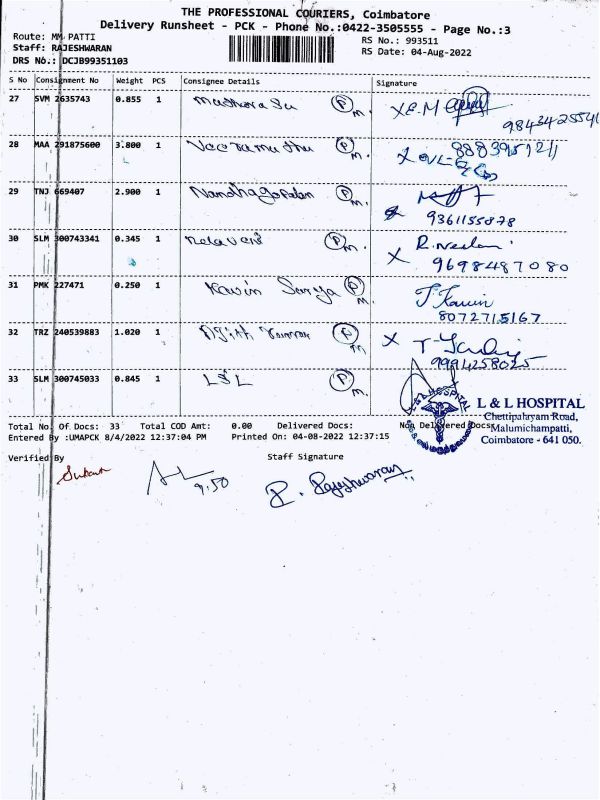 THE PROFESSIONAL COURIERS, Coimbatore
Delivery Runsheet - PCK - Phone No.:0422-3505555 - Page No.:3
Route: MM PATTI
RS No.: 993511
Staff: RAJESHWARAN
RS Date: 04-Aug-2022
DRS No.: DCJB99351103
S No Consignment No Weight PCS Consignee Details Signature
27 SVM 2635743 0.855 1 P M.
28 MAA 291875600 3.800 1 Veeramuthu P M. 8883951211
29 TNJ 669407 2.900 1 Nandhagopalan P M.
9361155878
30 SLM 300743341 0.345 1 P M.
9698487080
31 PMK 227471 0.250 1 Kavin Surya P M. J. Kavin
8072715167
32 TRZ 240539883 1.020 1 Ajith Kumar P M
9994258025
33 SLM 300745033 0.845 1 L&L P M.
L & L HOSPITAL
L & L HOSPITAL
Chettipalayam Road,
Malumichampatti,
Coimbatore - 641 050.
Total No. Of Docs: 33 Total COD Amt: 0.00 Delivered Docs: Non Delivered Docs:
Entered By :UMAPCK 8/4/2022 12:37:04 PM Printed On: 04-08-2022 12:37:15
Verified By Staff Signature
9.50
R. Rajeshwaran